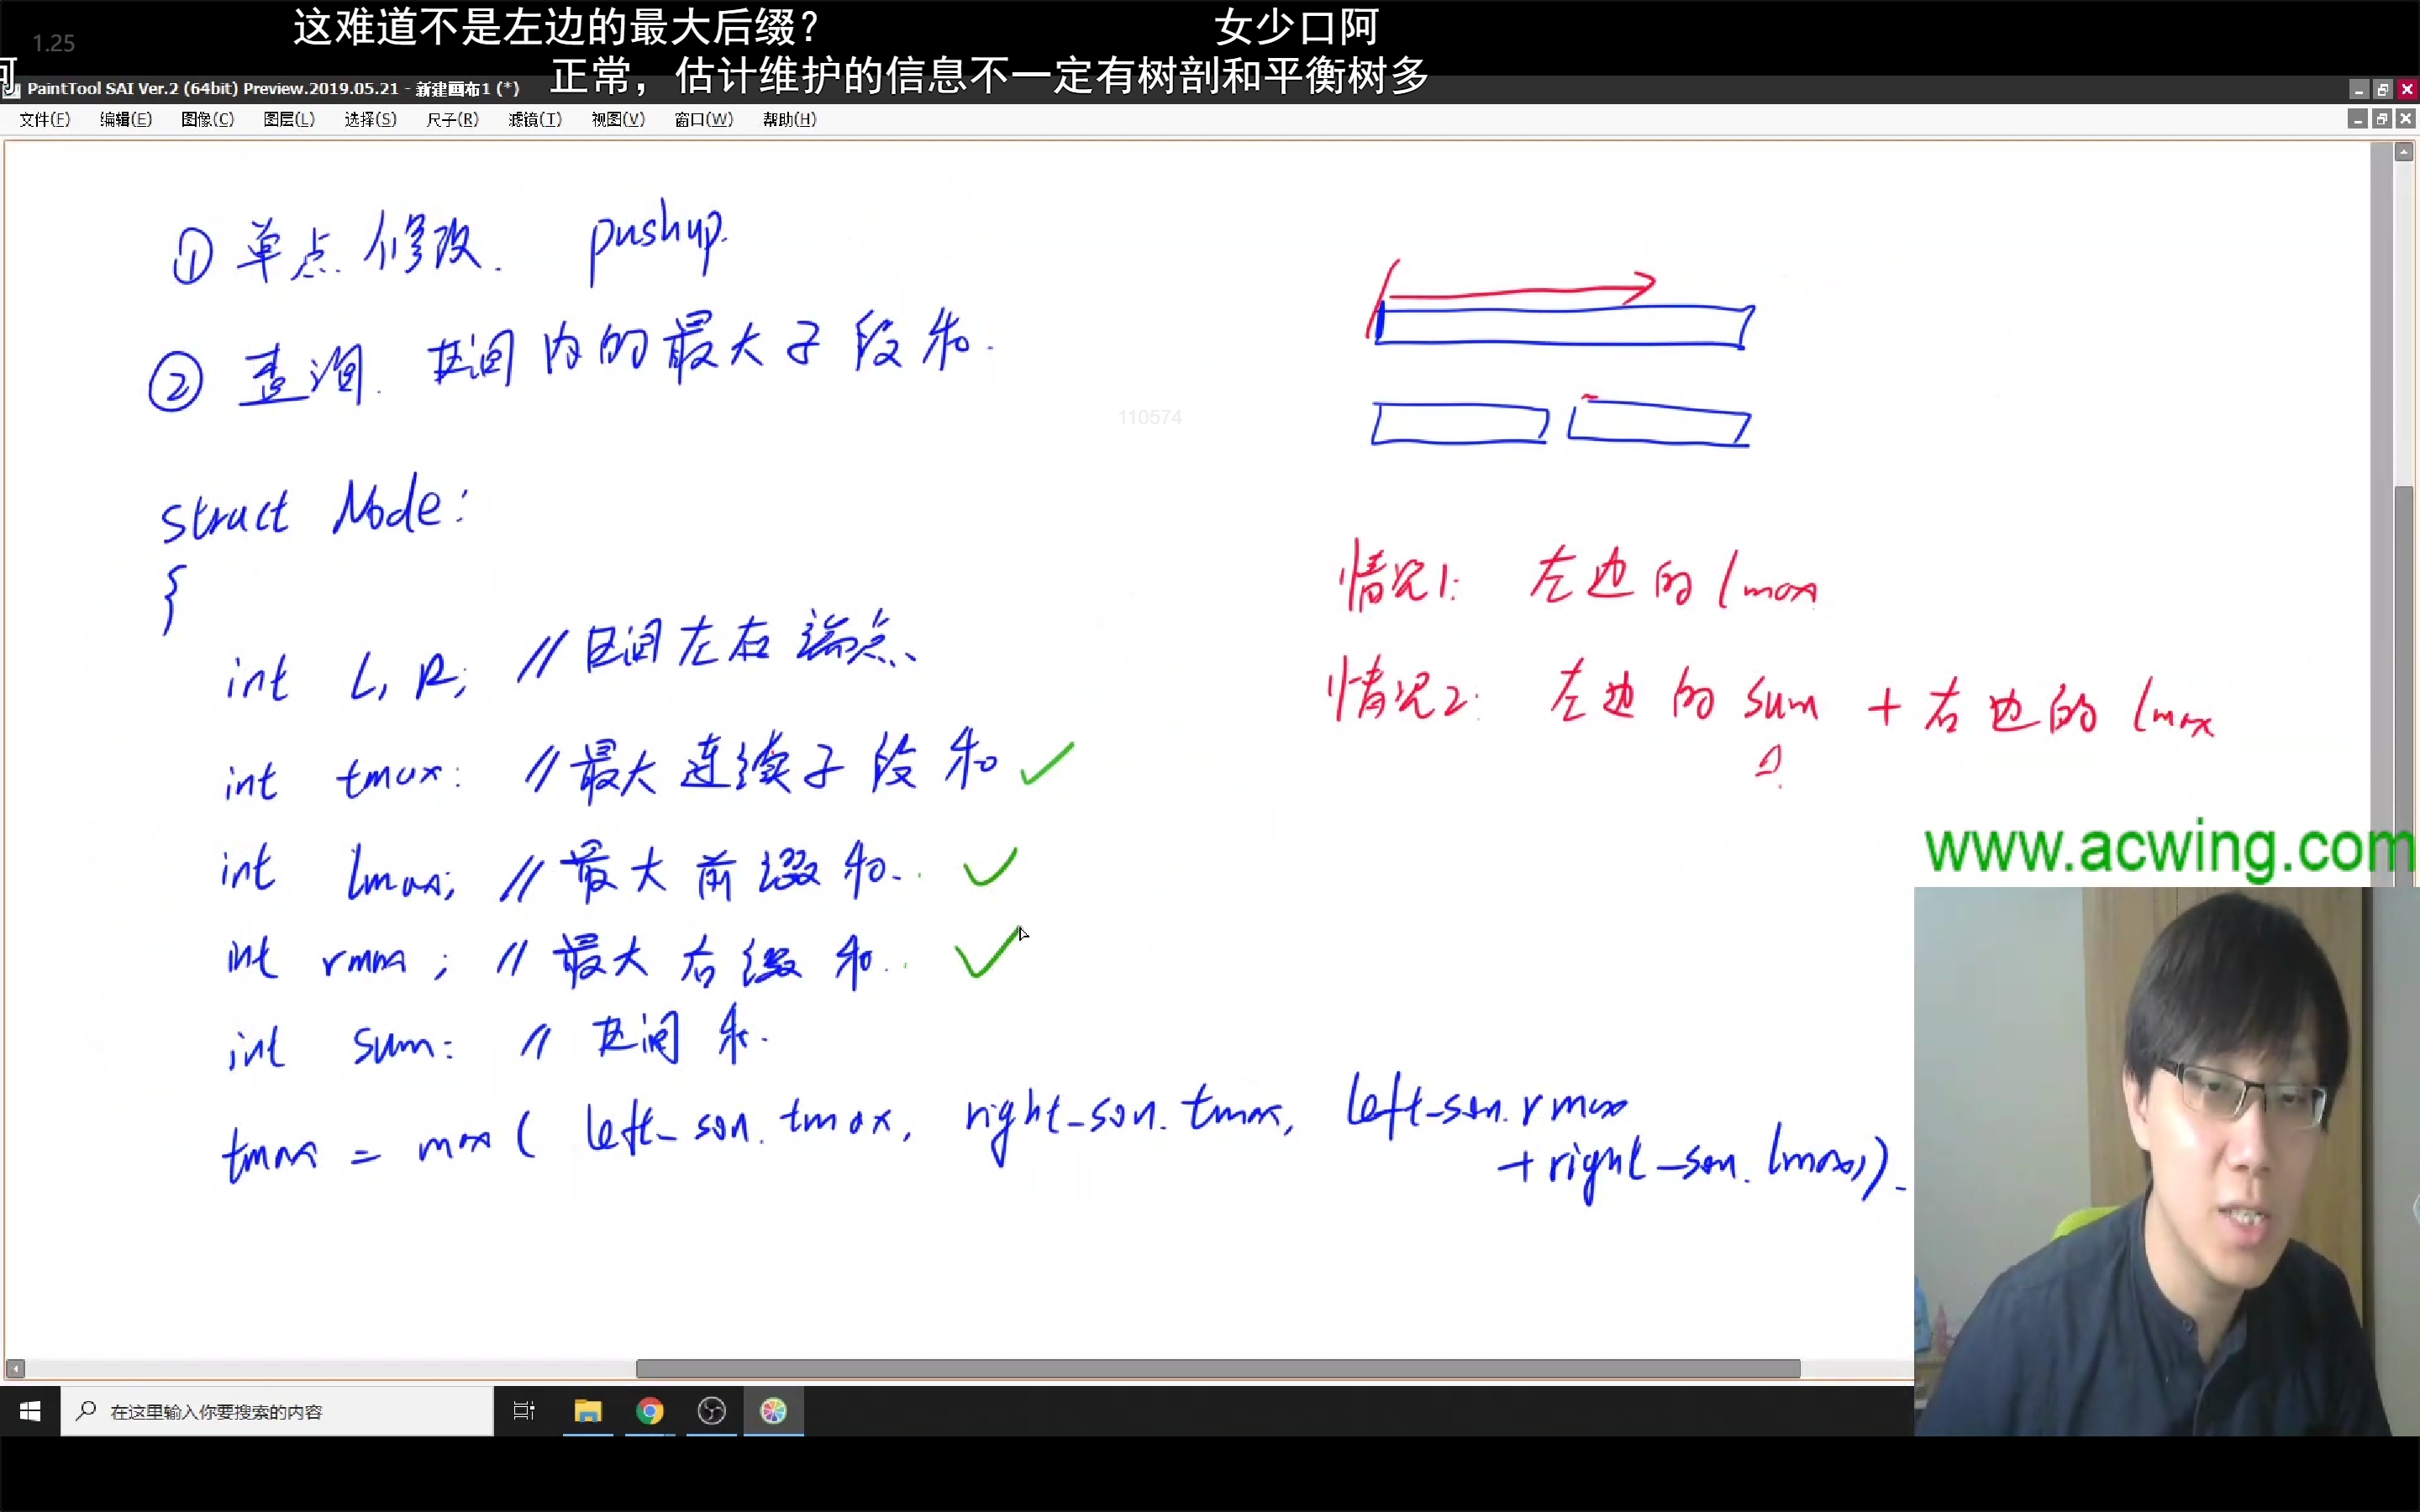 1.25
这难道不是左边的最大后缀？
女少口阿
正常，估计维护的信息不一定有树剖和平衡树多
PaintTool SAI Ver.2 (64bit) Preview.2019.05.21 - 新建画布1 (*)
文件(F) 编辑(E) 图像(C) 图层(L) 选择(S) 尺子(R) 滤镜(T) 视图(V) 窗口(W) 帮助(H)
① 单点修改. pushup.
② 查询. 区间内的最大子段和.
110574
struct Node:
{
int L, R; //区间左右端点、
int tmax: //最大连续子段和
int lmax; //最大前缀和.
int rmax; //最大右缀和.
int sum: // 区间和.
tmax = max( left_son.tmax, right_son.tmax, left_son.rmax
+right_son.lmax)).
情况1: 左边的lmax
情况2: 左边的sum + 右边的lmax
www.acwing.com
在这里输入你要搜索的内容